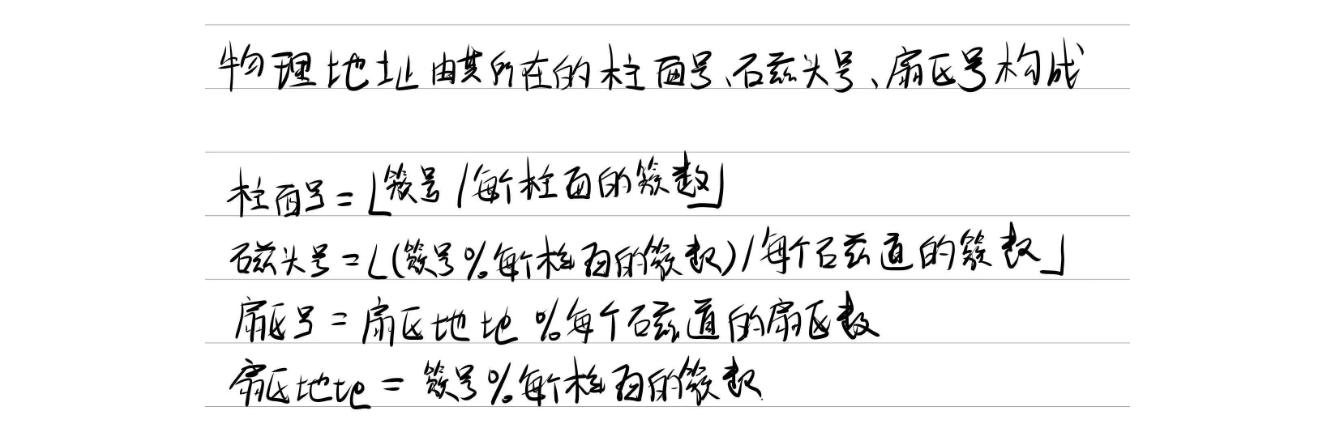 物理地址由其所在的柱面号、磁头号、扇区号构成
柱面号=⌊簇号/每个柱面的簇数⌋
磁头号=⌊(簇号%每个柱面的簇数)/每个磁道的簇数⌋
扇区号=扇区地地%每个磁道的扇区数
扇区地地=簇号%每个柱面的簇数